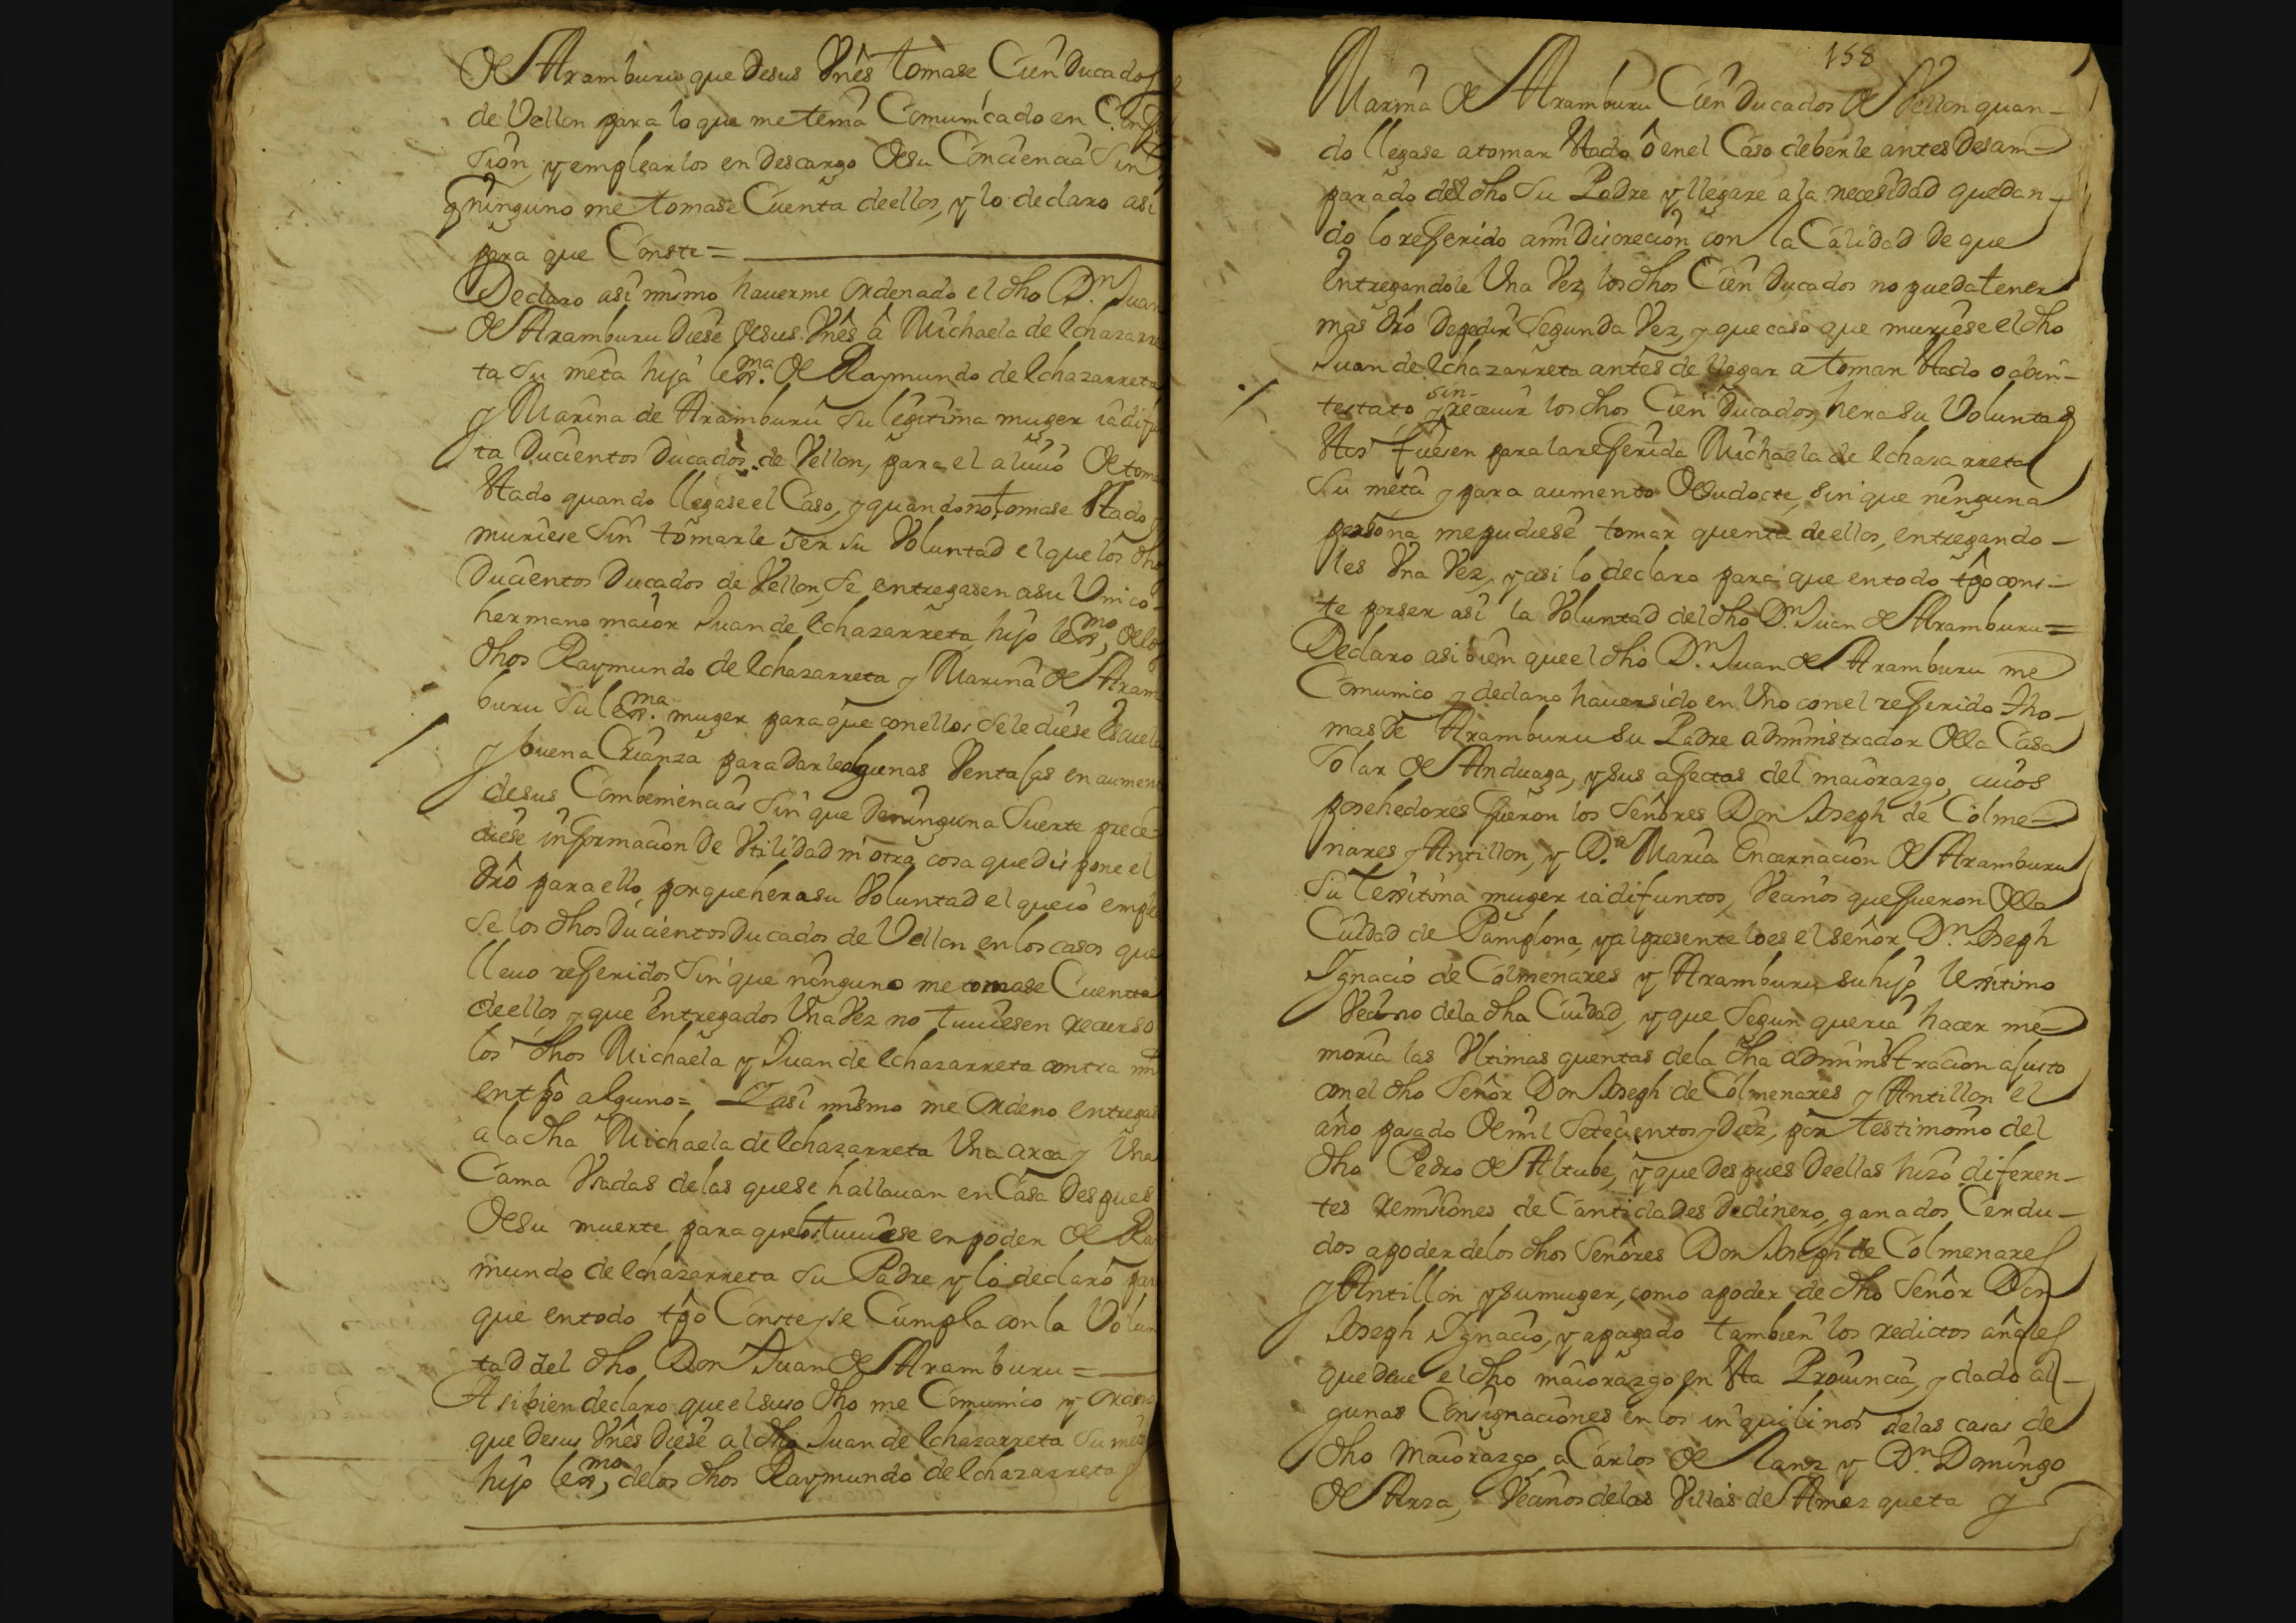 de Aramburu que de sus Vnês tomase Cien ducados
de Vellon para lo que me tenia Comunicado en
sion, y emplearlos en descargo de su Conciencia sin
q ninguno me tomase Cuenta de ellos, y lo declaro asi
para que Conste =
Declaro asi mismo hauerme Ordenado el dho Dn. Juan
de Aramburu diese de sus Vnês â Michaela de Echazarre
ta su nieta hija lexma. de Raymundo de Echazarreta
y Marina de Aramburu su legitima muger ia difu
ta Ducientos Ducados de Vellon, para el aliuio de toma
stado quando llegase el Caso, y quando no tomase stado y
muriese sin tomarle ser su Voluntad el que los dho
Ducientos Ducados de Vellon, se entregasen a su Vnico
hermano maior Juan de Echazarreta hijo lexmo, de los
dhos Raymundo de Echazarreta y Marina de Aram
buru su lexma. muger para que con ellos se le diese Escuela
y buena Crianza para darle algunas Ventajas en aumen
de sus Combeniencias sin que de ninguna suerte prece
diese informacion de Vtilidad ni otra cosa que dispone el
drô para ello, porque hera su Voluntad el que io emple
se los dhos Ducientos Ducados de Vellon en los casos que
lleuo referidos sin que ninguno me tomase Cuenta
de ellos y que Entregados Vna Vez no tuuiesen recurso
los dhos Michaela y Juan de Echazarreta contra mi
en tpô alguno = Y asi mismo me Ordeno entregas
a la dha Michaela de Echazarreta Vna arca y Vna
Cama Vsadas de las que se hallauan en Casa despues
de su muerte para que los tuuiese en poder de Ra
mundo de Echazarreta su Padre y lo declaro par
que en todo tpô Conste y se Cumpla con la Volun
tad del dho Don Juan de Aramburu =
Asi bien declaro que el suso dho me Comunico y Ordeno
que de sus Vnês diese al dho Juan de Echazarreta su nieto
hijo lexmo, de los dhos Raymundo de Echazarreta y
158
Marina de Aramburu Cien Ducados de Vellon quan-
do llegase a tomar stado ô en el Caso de berle antes desam
parado del dho su Padre y llegare a la necesidad quedan-
do lo referido a mi Discrecion con la Calidad de que
Entregandole Vna Vez los dhos Cien Ducados no pueda tener
mas drô de pedir segunda Vez, y que caso que muriese el dho
Juan de Echazarreta antes de llegar a tomar stado o abin-
testato sin reciuir los dhos Cien Ducados, hera su Voluntad
stos fuesen para la referida Michaela de Echazarreta
su nieta y para aumento de su docte, sin que ninguna
persona me pudiese tomar quenta de ellos, entregando-
les Vna Vez, y asi lo declaro para que en todo tpô cons-
te por ser asi la Voluntad del dho Dn. Juan de Aramburu =
Declaro asi bien que el dho Dn. Juan de Aramburu me
Comunico y declaro hauer sido en Vno con el referido Tho-
mas de Aramburu su Padre administrador de la Casa
solar de Anduaga, y sus afectas del maiorazgo, cuios
posehedores fueron los señores Don Joseph de Colme
nares y Antillon, y Da. Maria Encarnacion de Aramburu
su lexitima muger ia difuntos, Vecinos que fueron de la
Ciudad de Pamplona, y al presente lo es el señor Dn. Joseph
Ignacio de Colmenares y Aramburu su hijo lexitimo
Vecino de la dha Ciudad, y que segun queria hacer me
moria las Vltimas quentas de la dha administracion ajusto
con el dho señor Don Joseph de Colmenares y Antillon el
año pasado de mil setecientos y diez, por testimonio del
dho Pedro de Altube, y que despues de ellas hizo diferen-
tes remisiones de Cantidades de dinero, ganados Cerdu-
dos a poder de los dhos señores Don Joseph de Colmenares
y Antillon y su muger, como a poder de dho señor Don
Joseph Ignacio, y apagado tambien los redictos añales
que deue el dho maiorazgo en sta Prouincia, y dado al-
gunas Consignaciones en los inquilinos de las casas de
dho maiorazgo, a Carlos de Lanz y Dn. Domingo
de Arza, Vecinos de las Villas de Amezqueta y